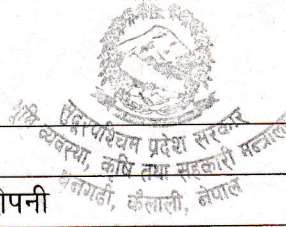 सुदूरपश्चिम प्रदेश सरकार
भूमि व्यवस्था, कृषि तथा सहकारी मन्त्रालय
धनगढी, कैलाली, नेपाल
ोपनी